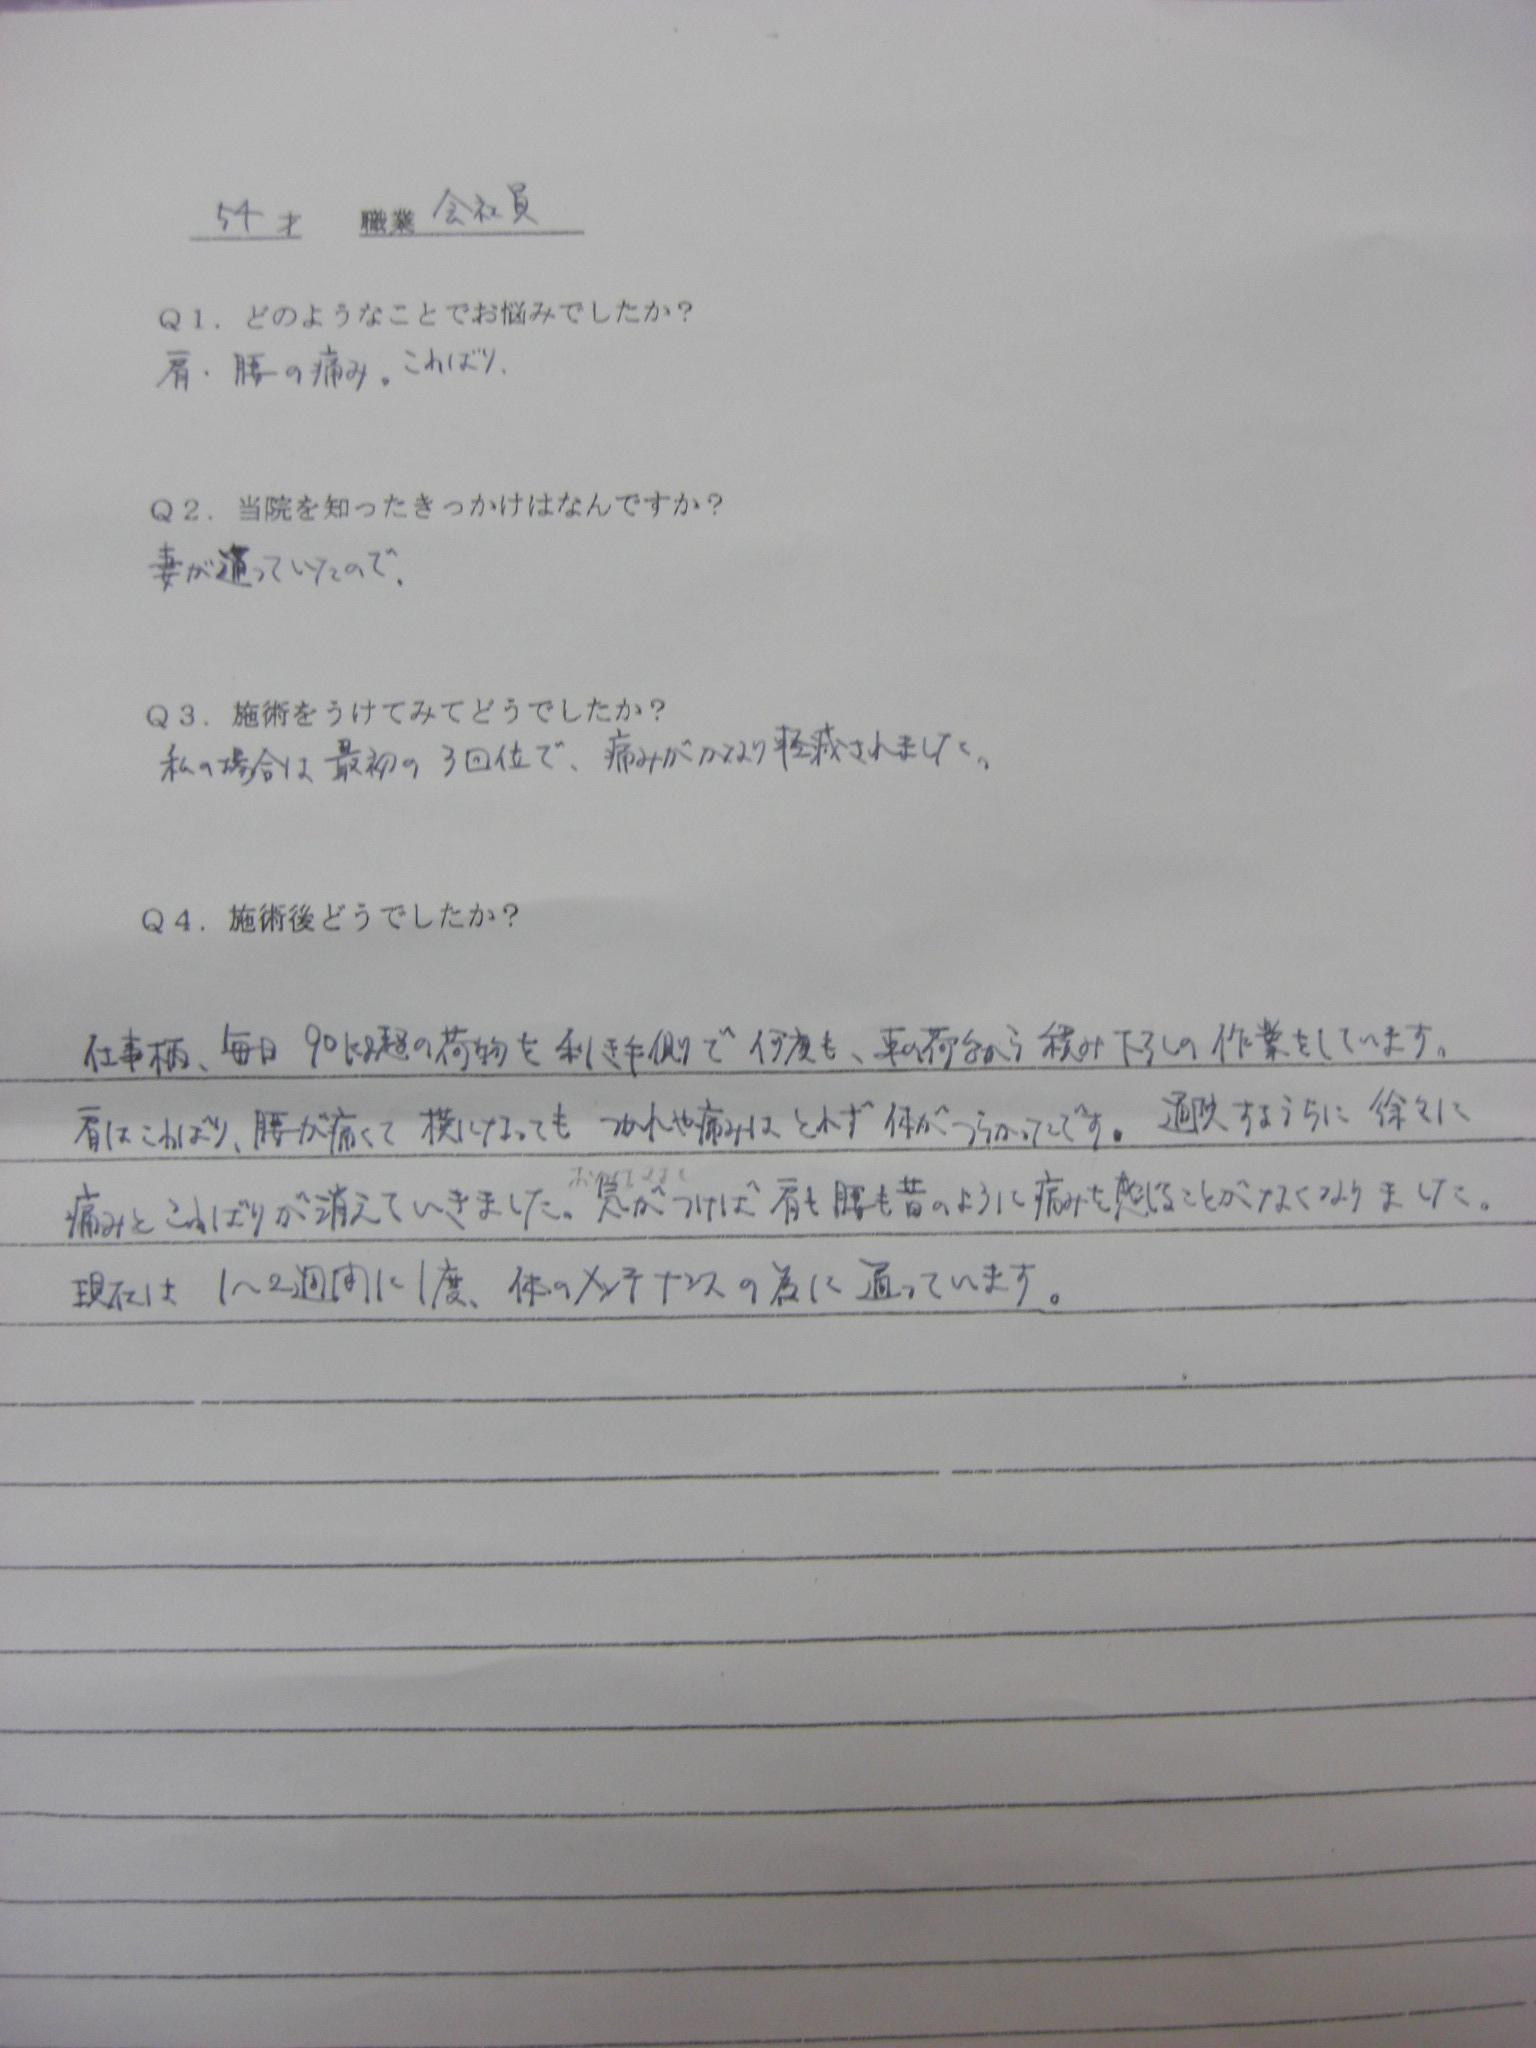 54才 職業 会社員
Q1. どのようなことでお悩みでしたか?
肩・腰の痛み。こわばり、
Q2. 当院を知ったきっかけはなんですか?
妻が通っていたので、
Q3. 施術をうけてみてどうでしたか?
私の場合は最初の3回位で、痛みがかなり軽減されました。
Q4. 施術後どうでしたか?
仕事柄、毎日90kg超の荷物を利き手側で何度も、車の荷台から積み下ろしの作業をしています。
肩はこわばり、腰が痛くて横になってもつかれや痛みはとれず体がつらかったです。通院するうちに徐々に
痛みとこわばりが消えていきました。気がつけば肩も腰も昔のように痛みを感じることがなくなりました。
現在は1〜2週間に1度、体のメンテナンスの為に通っています。